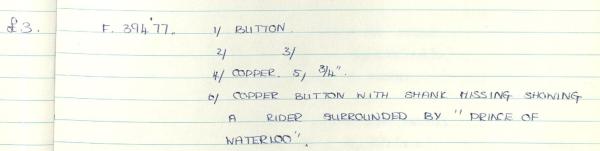 £3. F. 394'77. 1/ BUTTON.
2/ 3/
4/ COPPER. 5/ 3/4".
6/ COPPER BUTTON WITH SHANK MISSING SHOWING
A RIDER SURROUNDED BY "PRINCE OF
WATERLOO".